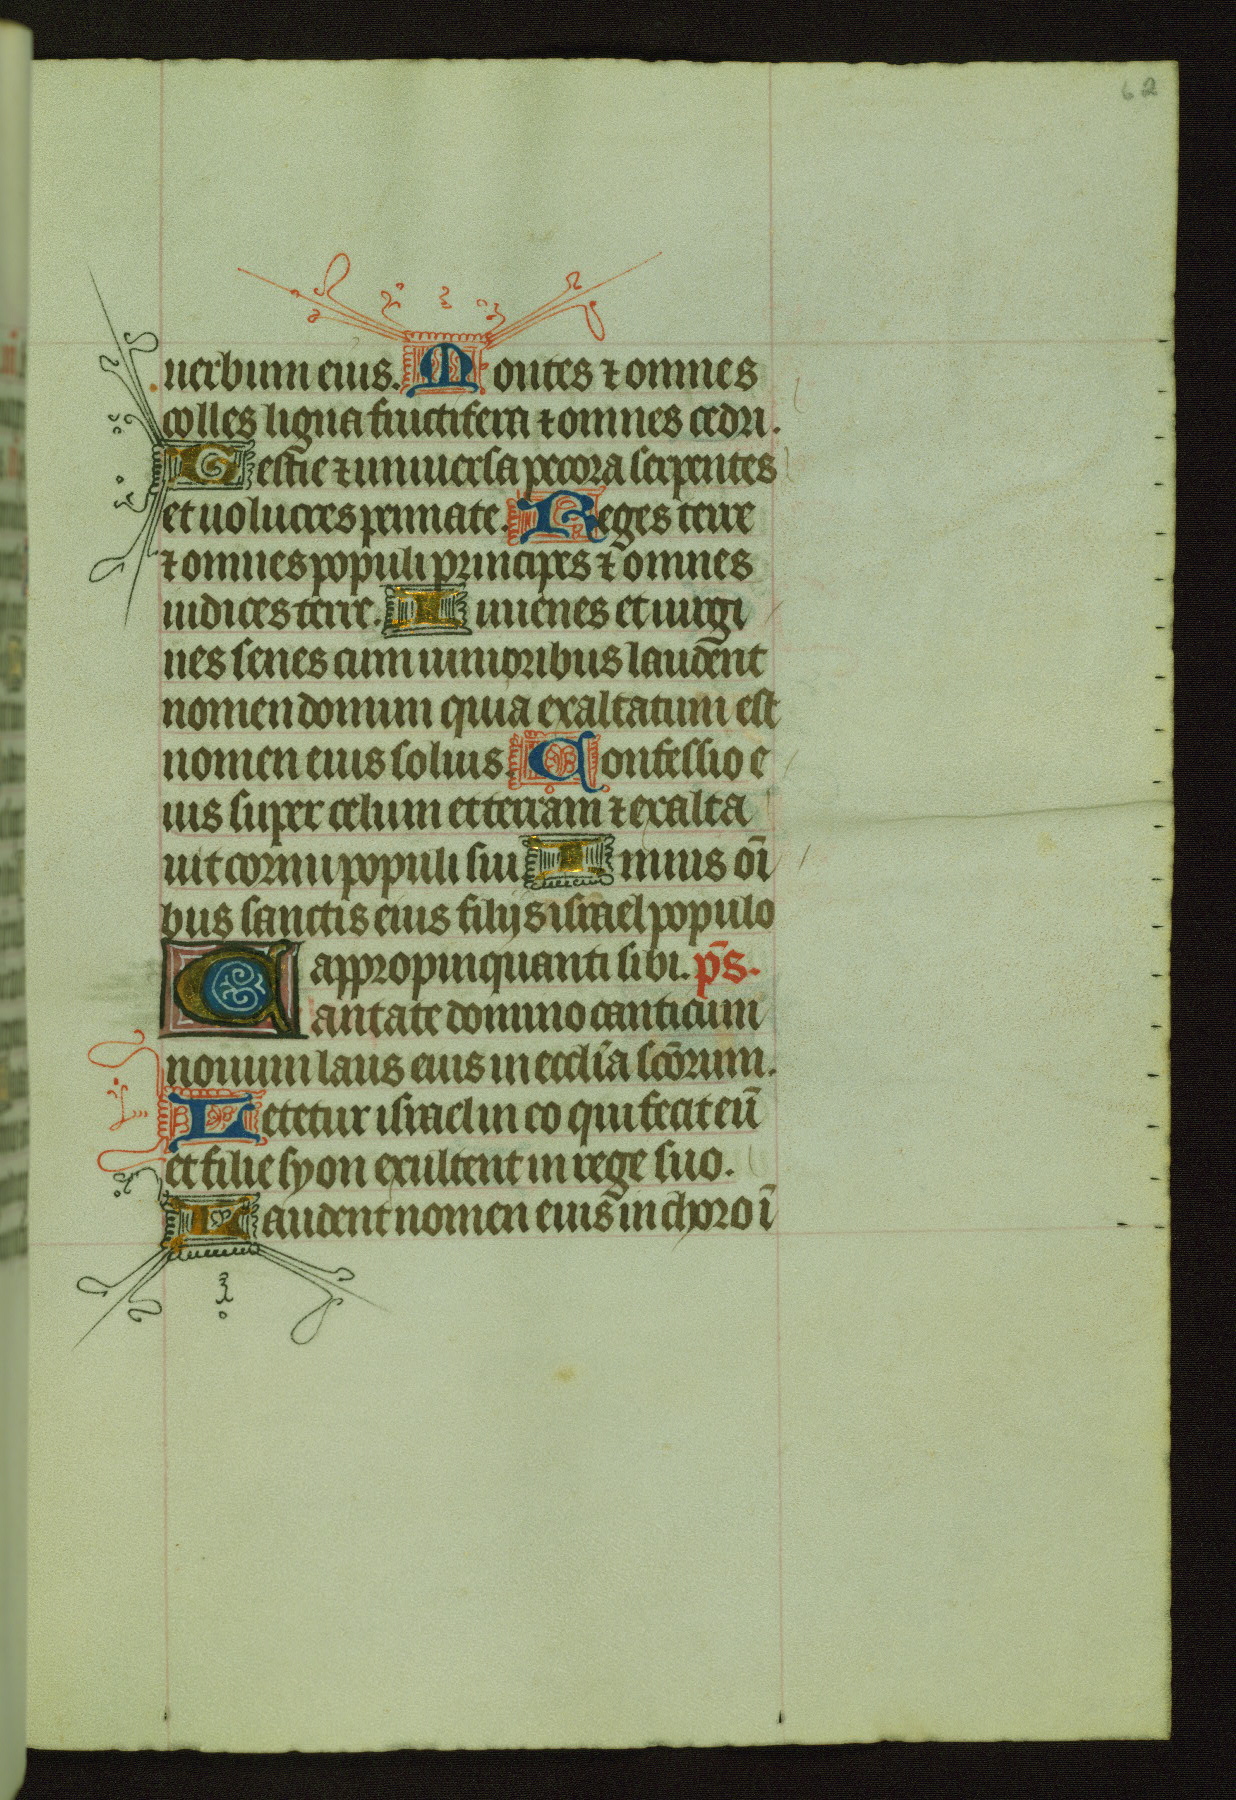 62
uerbum eius. Montes ⁊ omnes
colles ligna fructifera ⁊ omnes cedri.
Bestie ⁊ uniuersa pecora serpentes
et uolucres pennate. Reges terre
⁊ omnes populi principes ⁊ omnes
iudices terre. Iuuenes et uirgi
nes senes cum iunioribus laudent
nomen domini quia exaltatum est
nomen eius solius. Confessio e
ius super celum et terram ⁊ exalta
uit cornu populi sui Imnus oı̄
bus sanctis eius filijs israel populo
appropinquanti sibi. p̄s.
Cantate domino canticum
nouum laus eius in eccl̄ia sc̄orum.
Letetur israel in eo qui fecit eū
et filie syon exultent in rege suo.
Laudent nomen eius in choro ī